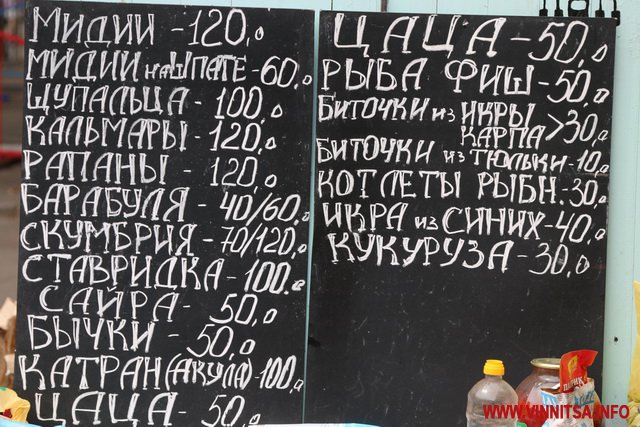 МИДИИ - 120,0
МИДИИ на ШПАГЕ - 60,0
ЩУПАЛЬЦА - 100,0
КАЛЬМАРЫ - 120,0
РАПАНЫ - 120,0
БАРАБУЛЯ - 40/60,0
СКУМБРИЯ - 70/120,0
СТАВРИДКА - 100,0
САЙРА - 50,0
БЫЧКИ - 50,0
КАТРАН (АКУЛА) - 100,0
ЦАЦА - 50,0
ЦАЦА - 50,0
РЫБА ФИШ - 50,0
БИТОЧКИ из ИКРЫ
КАРПА > 30,0
БИТОЧКИ из ТЮЛЬКИ - 10,0
КОТЛЕТЫ РЫБН. - 30,0
ИКРА из СИНИХ - 40,0
КУКУРУЗА - 30,0
WWW.VINNITSA.INFO